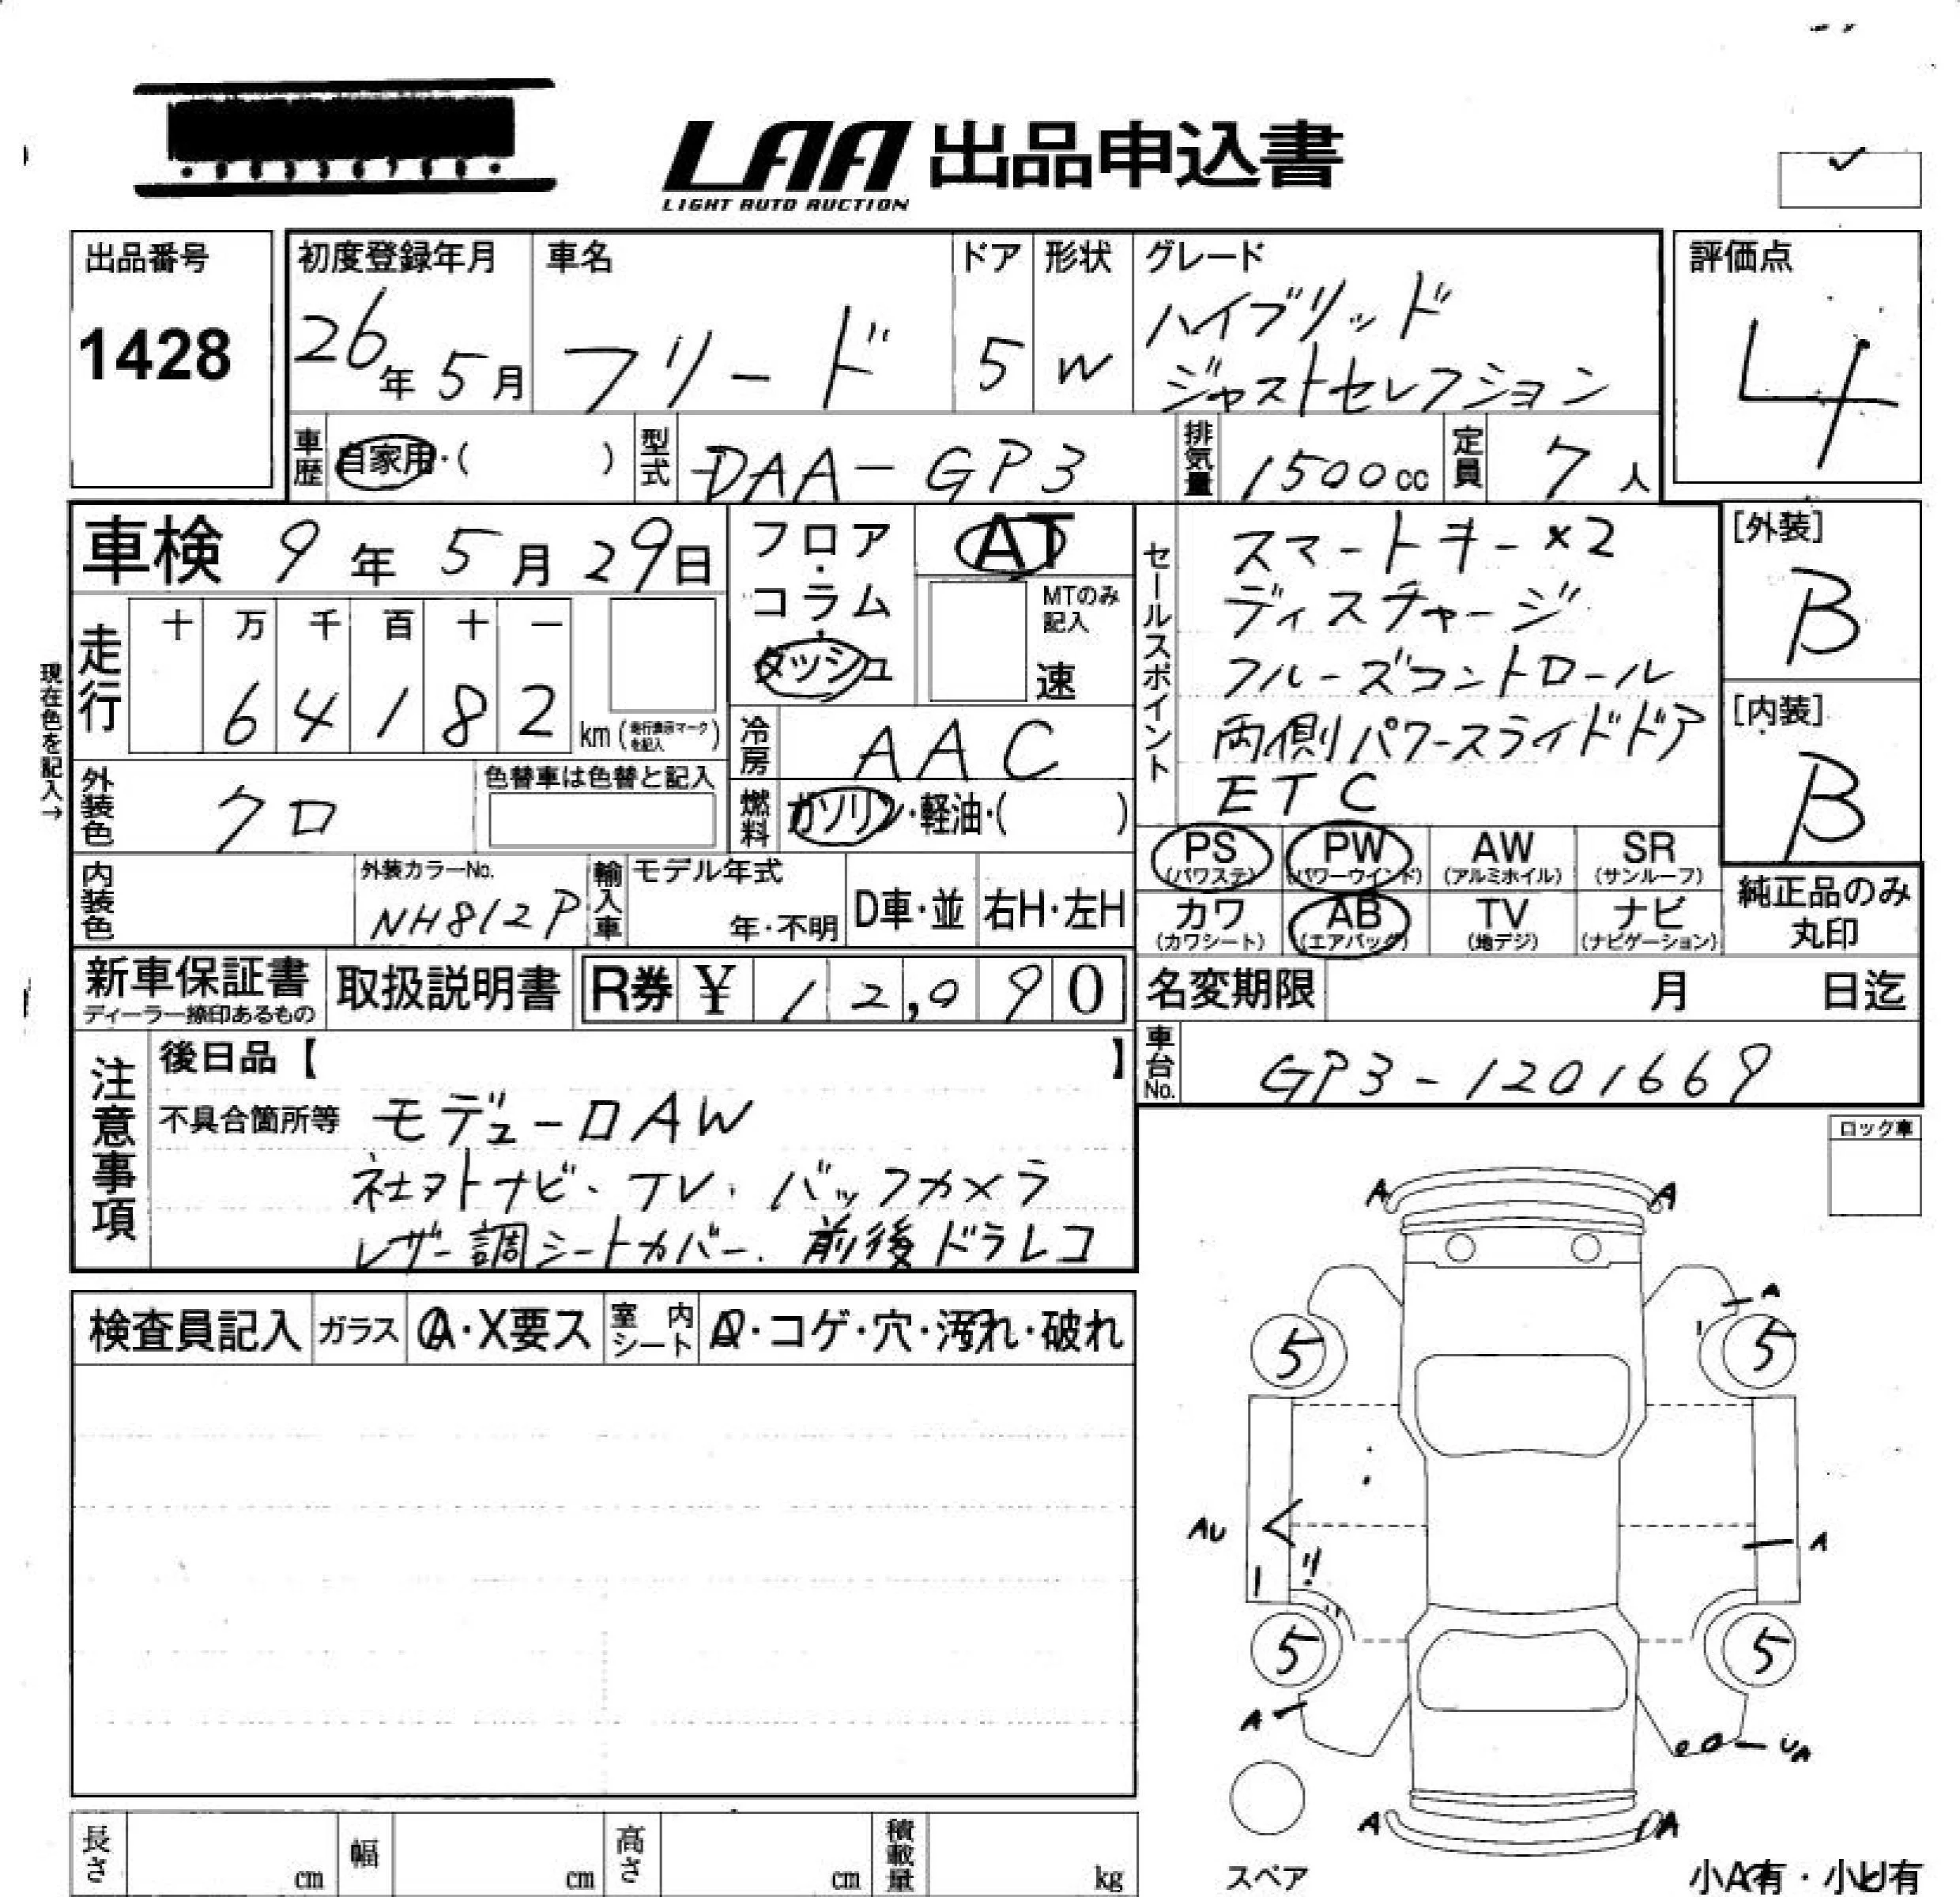 LAA 出品申込書
LIGHT AUTO AUCTION
出品番号
1428
初度登録年月
26年 5月
車名
フリード
ドア
5
形状
W
グレード
ハイブリッド
ジャストセレクション
評価点
4
車歴
自家用・( )
型式
DAA-GP3
排気量
1500cc
定員
7人
車検 9年 5月 29日
フロア・コラム・ダッシュ
AT
MTのみ記入
速
セールスポイント
スマートキー×2
ディスチャージ
クルーズコントロール
両側パワースライドドア
ETC
[外装]
B
[内装]
B
現在色を記入→
走行
十 万 千 百 十 一
6 4 1 8 2
km(走行表示マークを記入)
冷房
AAC
外装色
クロ
色替車は色替と記入
燃料
ガソリン・軽油・( )
PS
(パワステ)
PW
(パワーウインド)
AW
(アルミホイル)
SR
(サンルーフ)
カワ
(カワシート)
AB
(エアバッグ)
TV
(地デジ)
ナビ
(ナビゲーション)
純正品のみ
丸印
内装色
外装カラーNo.
NH812P
輸入車
モデル年式
年・不明
D車・並
右H・左H
新車保証書
ディーラー捺印あるもの
取扱説明書
R券 ¥ 12,090
名変期限
月 日迄
車台No.
GP3-1201669
注意事項
後日品【 】
不具合箇所等 モデューロAW
社外ナビ、TV、バックカメラ
レザー調シートカバー、前後ドラレコ
ロック車
検査員記入
ガラス
A・X要ス
室内シート
・コゲ・穴・汚れ・破れ
A A
A
5 5
AU
A
5 5
A
UA
A A
スペア
小A有・小U有
長さ cm
幅 cm
高さ cm
積載量 kg